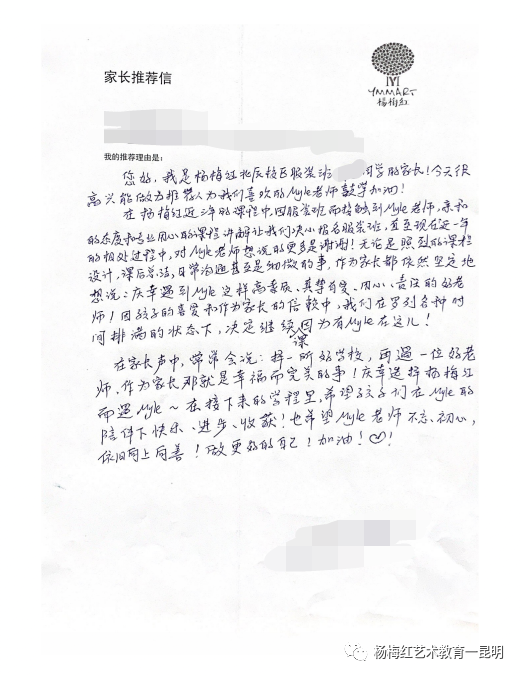 家长推荐信
YMMART
杨梅红
我的推荐理由是:
您好,我是杨梅红北辰校区服装班 同学的家长!今天很
高兴能做为推荐人为我们喜欢的Myle老师鼓掌加油!
在杨梅红近三年的课程中因服装班而接触到Myle老师,亲和
的态度和专业用心的课程讲解让我们决心报名服装班,直至现在近一年
的相处过程中,对Myle老师想说的更多是谢谢!无论是照到的课程
设计,课后总结,日常沟通甚至是细微的事,作为家长都依然坚定地
想说:庆幸遇到Myle这样高素质、真挚有爱、用心、责任的好老
师!因孩子的喜爱和作为家长的信赖中,我们在罗列各种时
间排满的状态下,决定继续课因为有Myle在这儿!
在家长声中,常常会说:择一所好学校,再遇一位好老
师,作为家长那就是幸福而完美的事!庆幸选择杨梅红
而遇Myle~在接下来的学程里,希望孩子们在Myle的
陪伴下快乐、进步、收获!也希望Myle老师不忘初心,
依旧向上向善!做更好的自己!加油!♡!
杨梅红艺术教育一昆明